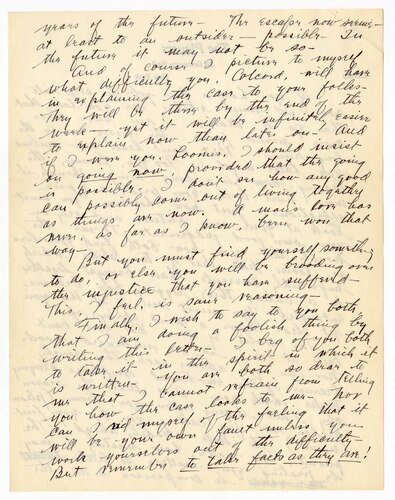 years of the future - The escape now seems -
at least to an outsider - possible - In
the future it may not be so -
And of course I picture to myself
what difficulty you, Colcord, will have
in explaining the case to your folks -
They will be there by the end of the
week - yet it will be infinitely easier
to explain now than later on - And
if I were you, Loomis, I should insist
on going now, provided that the going
is possible - I don't see how any good
can possibly come out of living together
as things are now. A man's love has
never, as far as I know, been won that
way -
But you must find yourself something
to do, or else you will be brooding over
the injustice that you have suffered -
This, I feel, is sane reasoning -
Finally, I wish to say to you both,
that I am doing a foolish thing by
writing this letter - I beg of you both
to take it in the spirit in which it
is written - you are both so dear to
me that I cannot refrain from telling
you how the case looks to me - nor
can I rid myself of the feeling that it
will be your own fault unless you
work yourselves out of the difficulty -
But remember to take facts as they are!